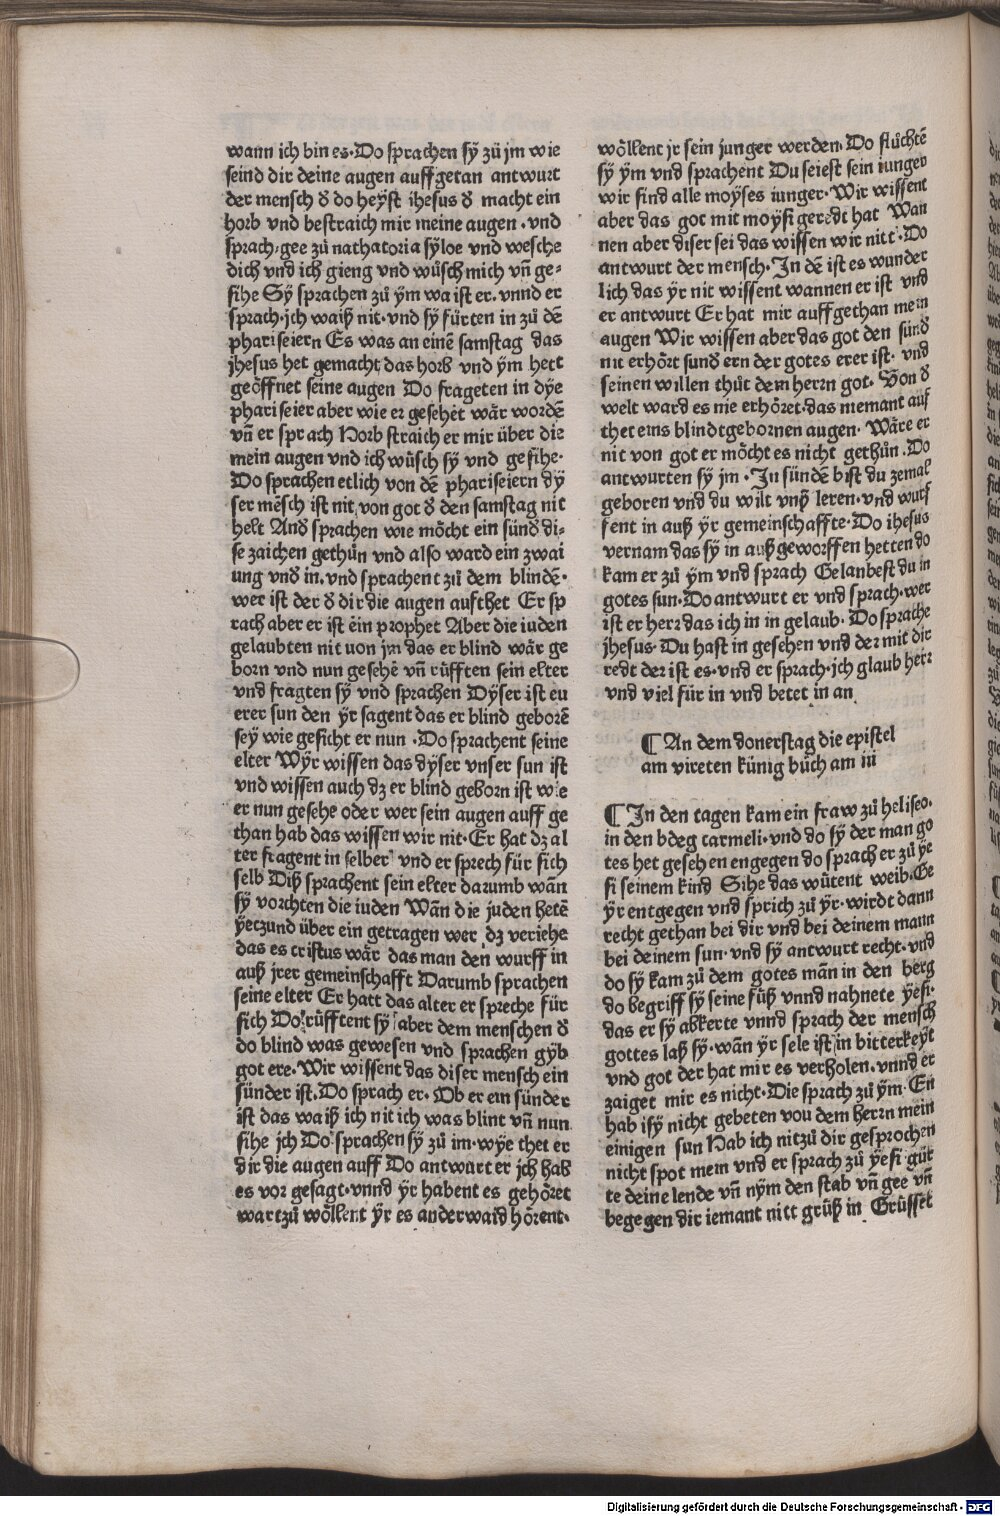 wann ich bin es·Do sprachen sÿ zů jm wie
seind dir deine augen auffgetan antwurt
der mensch d̕ do heÿst ihesus d̕ macht ein
horb vnd bestraich mir meine augen·vnd
sprach·gee zů nathatoria sÿloe vnd wesche
dich vnd ich gieng vnd wůsch mich vñ ge⸗
sihe Sÿ sprachen zů ÿm wa ist er·vnnd er
sprach·jch waiß nit·vnd sÿ fůrten in zů dē
phariseiern Es was an einē samstag das
jhesus het gemacht das horb vnd ÿm hett
geöffnet seine augen Do frageten in dÿe
phariseier aber wie er gesehēt wär wordē
vñ er sprach Horb straich er mir über die
mein augen vnd ich wůsch sÿ vnd gesihe·
Do sprachen etlich von dē phariseiern dÿ
ser mēsch ist nit von got d̕ den samstag nit
helt And̕ sprachen wie möcht ein sünd̕ di⸗
se zaichen gethůn vnd also ward ein zwai
ung vnd̕ in·vnd sprachent zů dem blindē·
wer ist der d̕ dir die augen aufthet Er sp
rach aber er ist ein prophet Aber die iuden
gelaubten nit uon jm das er blind wär ge
born vnd nun gesehē vñ růfften sein elter
vnd fragten sÿ vnd sprachen Dÿser ist eu
erer sun den ÿr sagent das er blind geborē
seÿ wie gesicht er nun·Do sprachent seine
elter Wÿr wissen das dÿser vnser sun ist
vnd wissen auch dz er blind geborn ist wie
er nun gesehe oder wer sein augen auff ge
than hab das wissen wir nit·Er hat dz al
ter fragent in selber vnd er sprech für sich
selb Diß sprachent sein elter darumb wān
sÿ vorchten die iuden Wān die juden hetē
ÿetzund über ein getragen wer dz veriehe
das es cristus wär das man den wurff in
auß jrer gemeinschafft Darumb sprachen
seine elter Er hatt das alter er spreche für
sich Do růfftent sÿ aber dem menschen d̕
do blind was gewesen vnd sprachen gÿb
got ere·Wir wissent das diser mensch ein
sünder ist·Do sprach er·Ob er ein sünder
ist das waiß ich nit ich was blint vñ nun
sihe jch Do sprachen sÿ zů im·wÿe thet er
dir die augen auff Do antwurt er jch hab
es vor gesagt·vnnd ÿr habent es gehöret
wartzů wöllent ÿr es anderwaid hörent·
wöllent jr sein junger werden·Do flůchtē
sÿ ÿm vnd sprachent Du seiest sein iunger
wir sind alle moÿses iunger·Wir wissent
aber das got mit moÿsi geredt hat Wan
nen aber diser sei das wissen wir nitt·Do
antwurt der mensch·In dē ist es wunder
lich das ÿr nit wissent wannen er ist vnd
er antwurt Er hat mir auffgethan mein
augen Wir wissen aber das got den sünd̕
nit erhört sund̕ ern der gotes erer ist·vnd
seinen willen thůt dem herrn got·Von d̕
welt ward es nie erhöret·das niemant auf
thet eins blindtgebornen augen·Wäre er
nit von got er möcht es nicht gethůn·Do
antwurten sÿ jm·In sündē bist du zemal
geboren vnd du wilt vnß leren·vnd wurf
fent in auß ÿr gemeinschaffte·Do ihesus
vernam das sÿ in auß geworffen hetten do
kam er zů ÿm vnd sprach Gelanbest du in
gotes sun·Do antwurt er vnd sprach·wer
ist er herz das ich in in gelaub·Do sprache
jhesus·Du hast in gesehen vnd der mit dir
redt der ist es·vnd er sprach·jch glaub herr
vnd viel für in vnd betet in an
¶ An dem donerstag die epistel
am vireten künig bůch am iiii
¶ In den tagen kam ein fraw zů heliseo·
in den bderg carmeli·vnd do sÿ der man go
tes het gesehen engegen do sprach er zů ÿe
si seinem kind Sihe das wůtent weib·Ge
ÿr entgegen vnd sprich zů ÿr·wirdt dann
recht gethan bei dir vnd bei deinem mann
bei deinem sun·vnd sÿ antwurt recht·vnd
do sÿ kam zů dem gotes mān in den berg
do begriff sÿ seine füß vnnd nahnete ÿesi·
das er sÿ abkerte vnnd sprach der mensch
gottes laß sÿ·wān ÿr sele ist in bitterkeÿt
vnd got der hat mir es verholen·vnnd er
zaiget mir es nicht·Die sprach zů ÿm·En
hab isÿ nicht gebeten vou dem herrn mein
einigen sun Hab ich nit zů dir gesprochen
nicht spot mein vnd er sprach zů ÿesi gür
te deine lende vñ nÿm den stab vñ gee vñ
begegen dir iemant nitt grůß in Grüsset
Digitalisierung gefördert durch die Deutsche Forschungsgemeinschaft - DFG